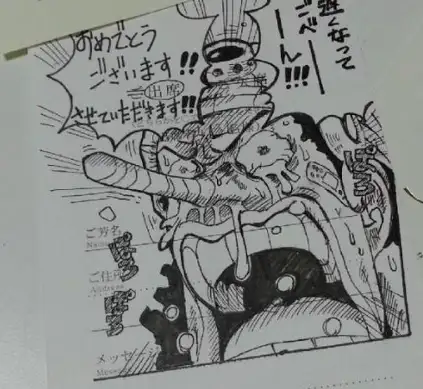 遅くなって
ごべーーん!!!
おめでとう
ございます!!
出席
させていただきます!!
ぽろ
ご芳名
Name
ぽろ
ご住所
Address
ぽろ
メッセージ